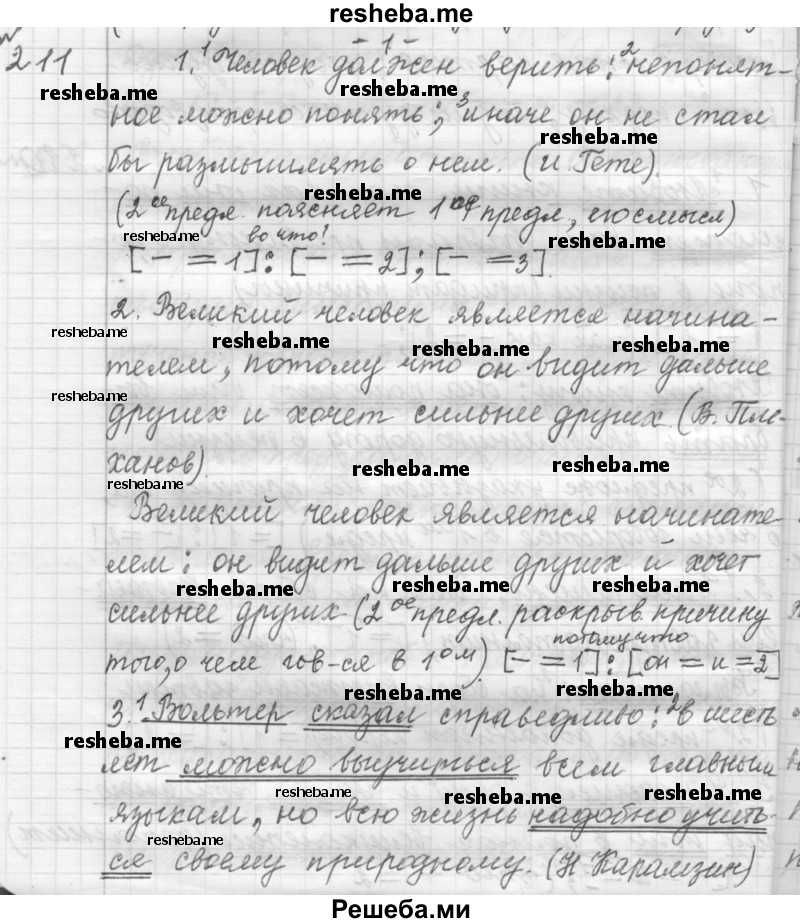 resheba.me
211 1. ¹Человек должен верить: ²непонят-
resheba.me resheba.me
ное можно понять; ³иначе он не стал
resheba.me
бы размышлять о нем. (И. Гёте).
resheba.me
(2ое предл. поясняет 1ое предл, его смысл)
resheba.me во что? resheba.me
[- = 1]: [- = 2]; [- = 3].
2. Великий человек является начина-
resheba.me resheba.me resheba.me resheba.me
телем, потому что он видит дальше
resheba.me
других и хочет сильнее других (В. Пле-
ханов).
resheba.me resheba.me
resheba.me
Великий человек является начинате-
лем: он видит дальше других и хочет
resheba.me resheba.me resheba.me
сильнее других (2ое предл. раскрыв. причину
потому что
того, о чем гов-ся в 1ом) [- = 1]: [он = и = 2]
resheba.me resheba.me
3. ¹Вольтер сказал справедливо: ²в шесть
resheba.me
лет можно выучиться всем главным
resheba.me resheba.me resheba.me
языкам, но всю жизнь надобно учить-
resheba.me
ся своему природному. (Н Карамзин)
Решеба.ми